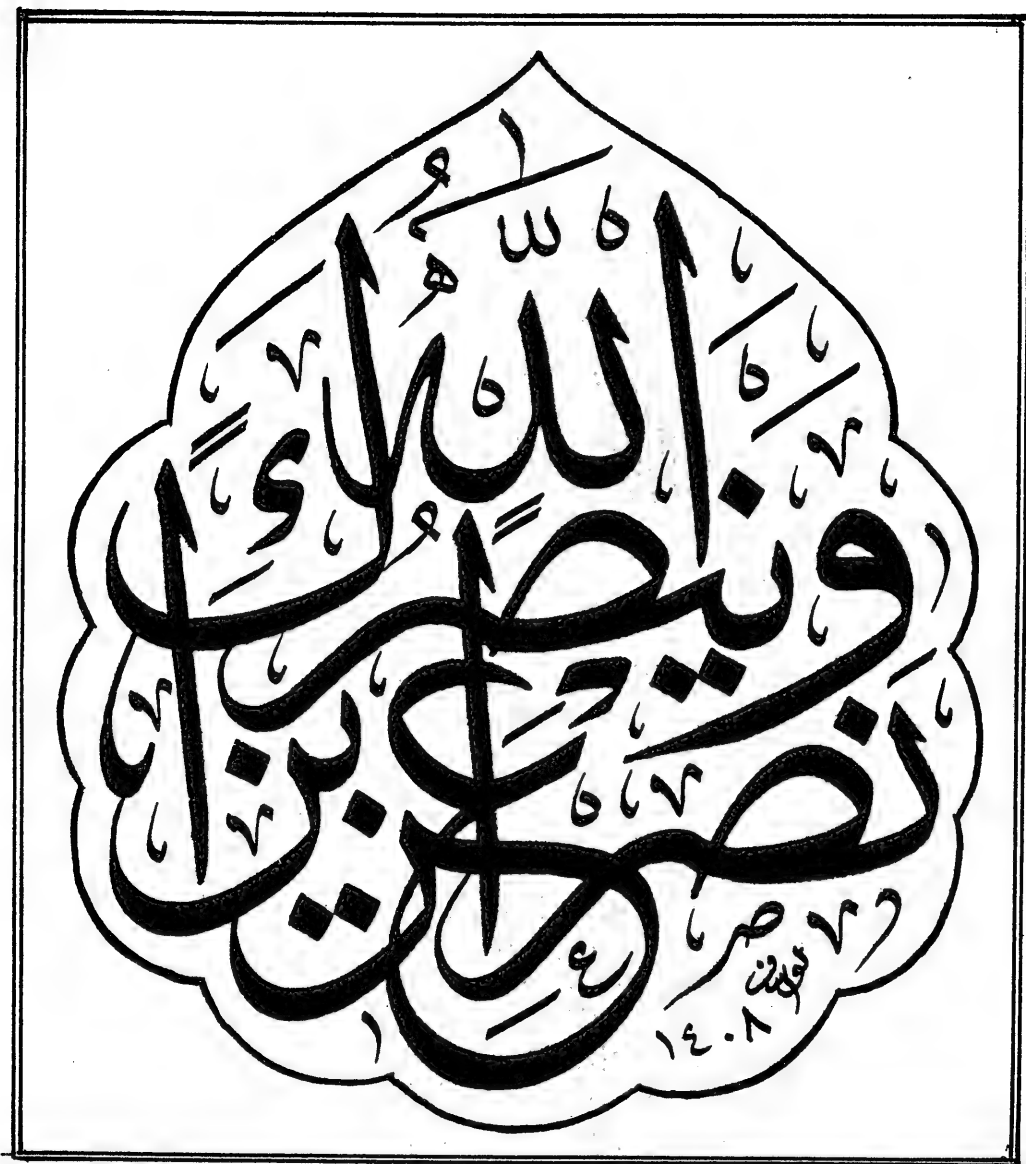 وَيَنصُرَكَ اللَّهُ
نَصْرًا عَزِيزًا
١٤٠٨